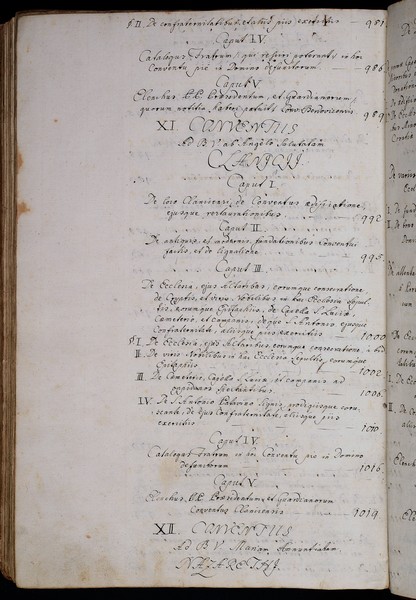 § II. De confraternitatibus, et alijs pijs exercitijs — 981
Caput IV.
Catalogus Fratrum, qui referri poterunt in hoc
Conventu piè in Domino defunctorum — 986
Caput V.
Elenchus PP. Praesidentum, et Guardianorum,
quorum notitia haberi potuit, Conv. — 989
XI. CONVENTUS
Ad B V. ab Angelo Salutatam
CLANIQIJ.
Caput I.
De loco Claniciensi, de Conventus aedificatione,
ejusque restaurationibus — 992
Caput II.
De antiquis, et modernis fundationibus Conventui
factis, et de lignatione — 995
Caput III.
De Ecclesia, ejus Altaribus, eorumque consecratione
de Cryptis, et viris Nobilibus in hac Ecclesia sepul-
tis, eorumque Epitaphijs, de Capella S. Luciae,
Caemeterio, et Campanis, deque S. Antonio ejusque
Confraternitate, alijsque pijs exercitijs — 1000
§ I. De Ecclesia, ejus Altaribus, eorumque consecratione ibid
II. De viris Nobilibus in hac Ecclesia sepultis, eorumque
Epitaphijs — 1002
III. De Caemeterio, Capella S. Luciae, et campanis ad
spectantibus — 1006
IV. De S. Antonio Patavino signis, prodigijsque coru-
scante, de ejus Confraternitate, alijsque pijs
exercitijs — 1010
Caput IV.
Catalogus Fratrum in hoc Conventu piè in Domino
defunctorum — 1016
Caput V.
Elenchus PP. Praesidentum, et Guardianorum
Conventus Claniciensis — 1019
XII. CONVENTUS
Ad B V. Mariam Annuntiatam
NAZARETHI.